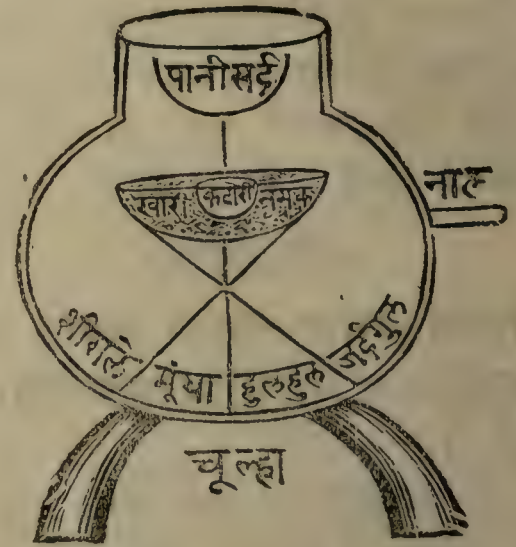 पानीसर्द
नाल
खारी कटोरी नमक
शीराले मूंघा हुलहुल जर्दगुल
चूल्हा